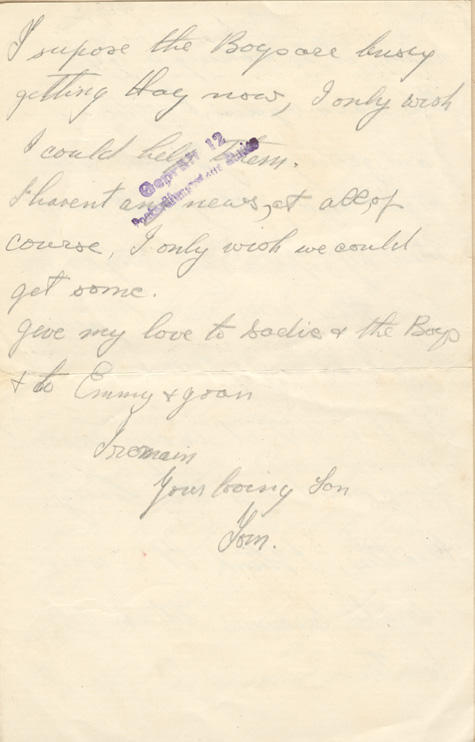 I supose the Boys are busy
getting Hay now, I only wish
I could help them.
Geprüft 12
I havent any news, at all, of
course, I only wish we could
get some.
give my love to Sadie & the Boys
& to Emmy & Joan
I remain
Your loving Son
Tom.